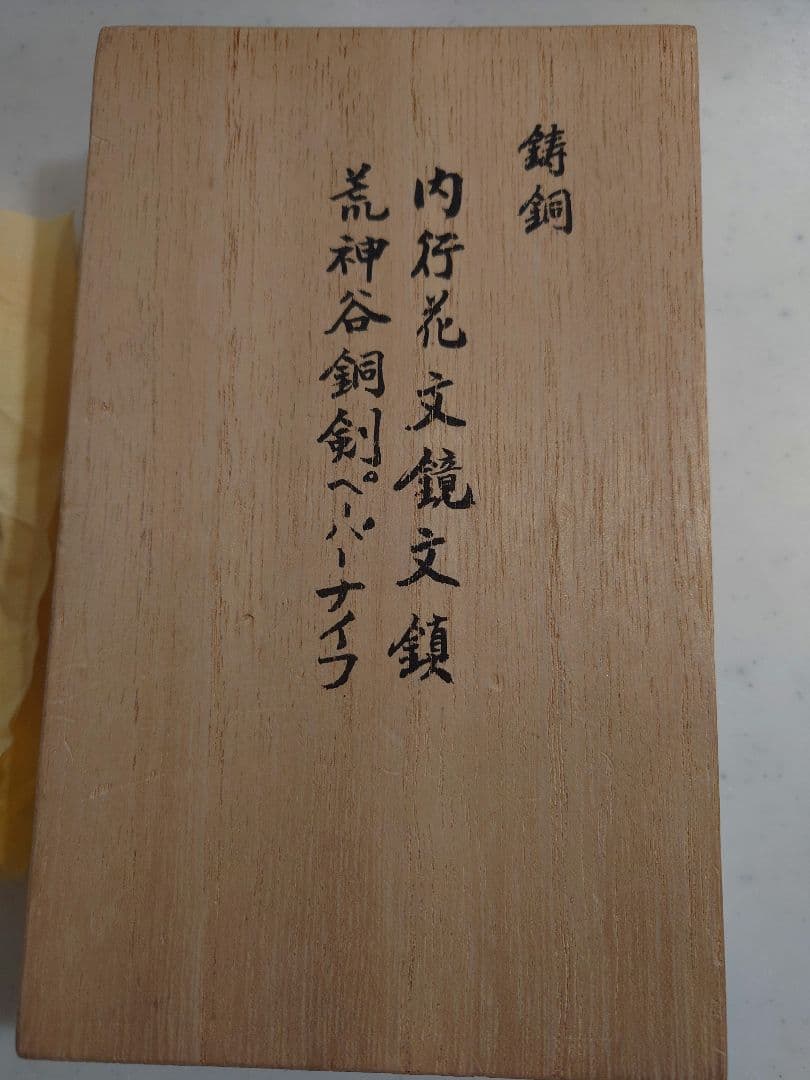 鋳銅
内行花文鏡文鎮
荒神谷銅剣ペーパーナイフ